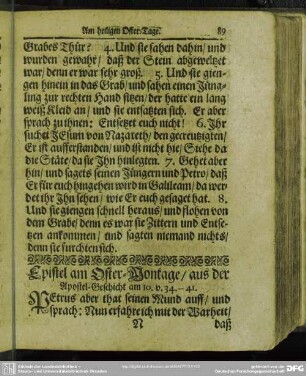 Am heiligen Oster-Tage. 89
Grabes Thür? 4. Und sie sahen dahin/ und
wurden gewahr/ daß der Stein abgeweltzet
war/ denn er war sehr groß. 5. Und sie gien-
gen hinein in das Grab/ und sahen einen Jüng-
ling zur rechten Hand sitzen/ der hatte ein lang
weiß Kleid an/ und sie entsatzten sich. Er aber
sprach zu ihnen: Entsetzet euch nicht! 6. Ihr
sucht JEsum von Nazareth/ den gecreutzigten/
Er ist aufferstanden/ und ist nicht hie/ Siehe da
die Stäte/ da sie Ihn hinlegten. 7. Gehet aber
hin/ und sagets seinen Jüngern und Petro/ daß
Er für euch hingehen wird in Galileam/ da wer-
det ihr Ihn sehen/ wie Er euch gesaget hat. 8.
Und sie giengen schnell heraus/ und flohen von
dem Grabe/ denn es war sie Zittern und Entse-
tzen ankommen/ und sagten niemand nichts/
denn sie furchten sich.
Epistel am Oster-Montage/ aus der
Apostel-Geschicht am 10. v. 34.-41.
PEtrus aber that seinen Mund auff/ und
sprach: Nun erfahre ich mit der Warheit/
N daß